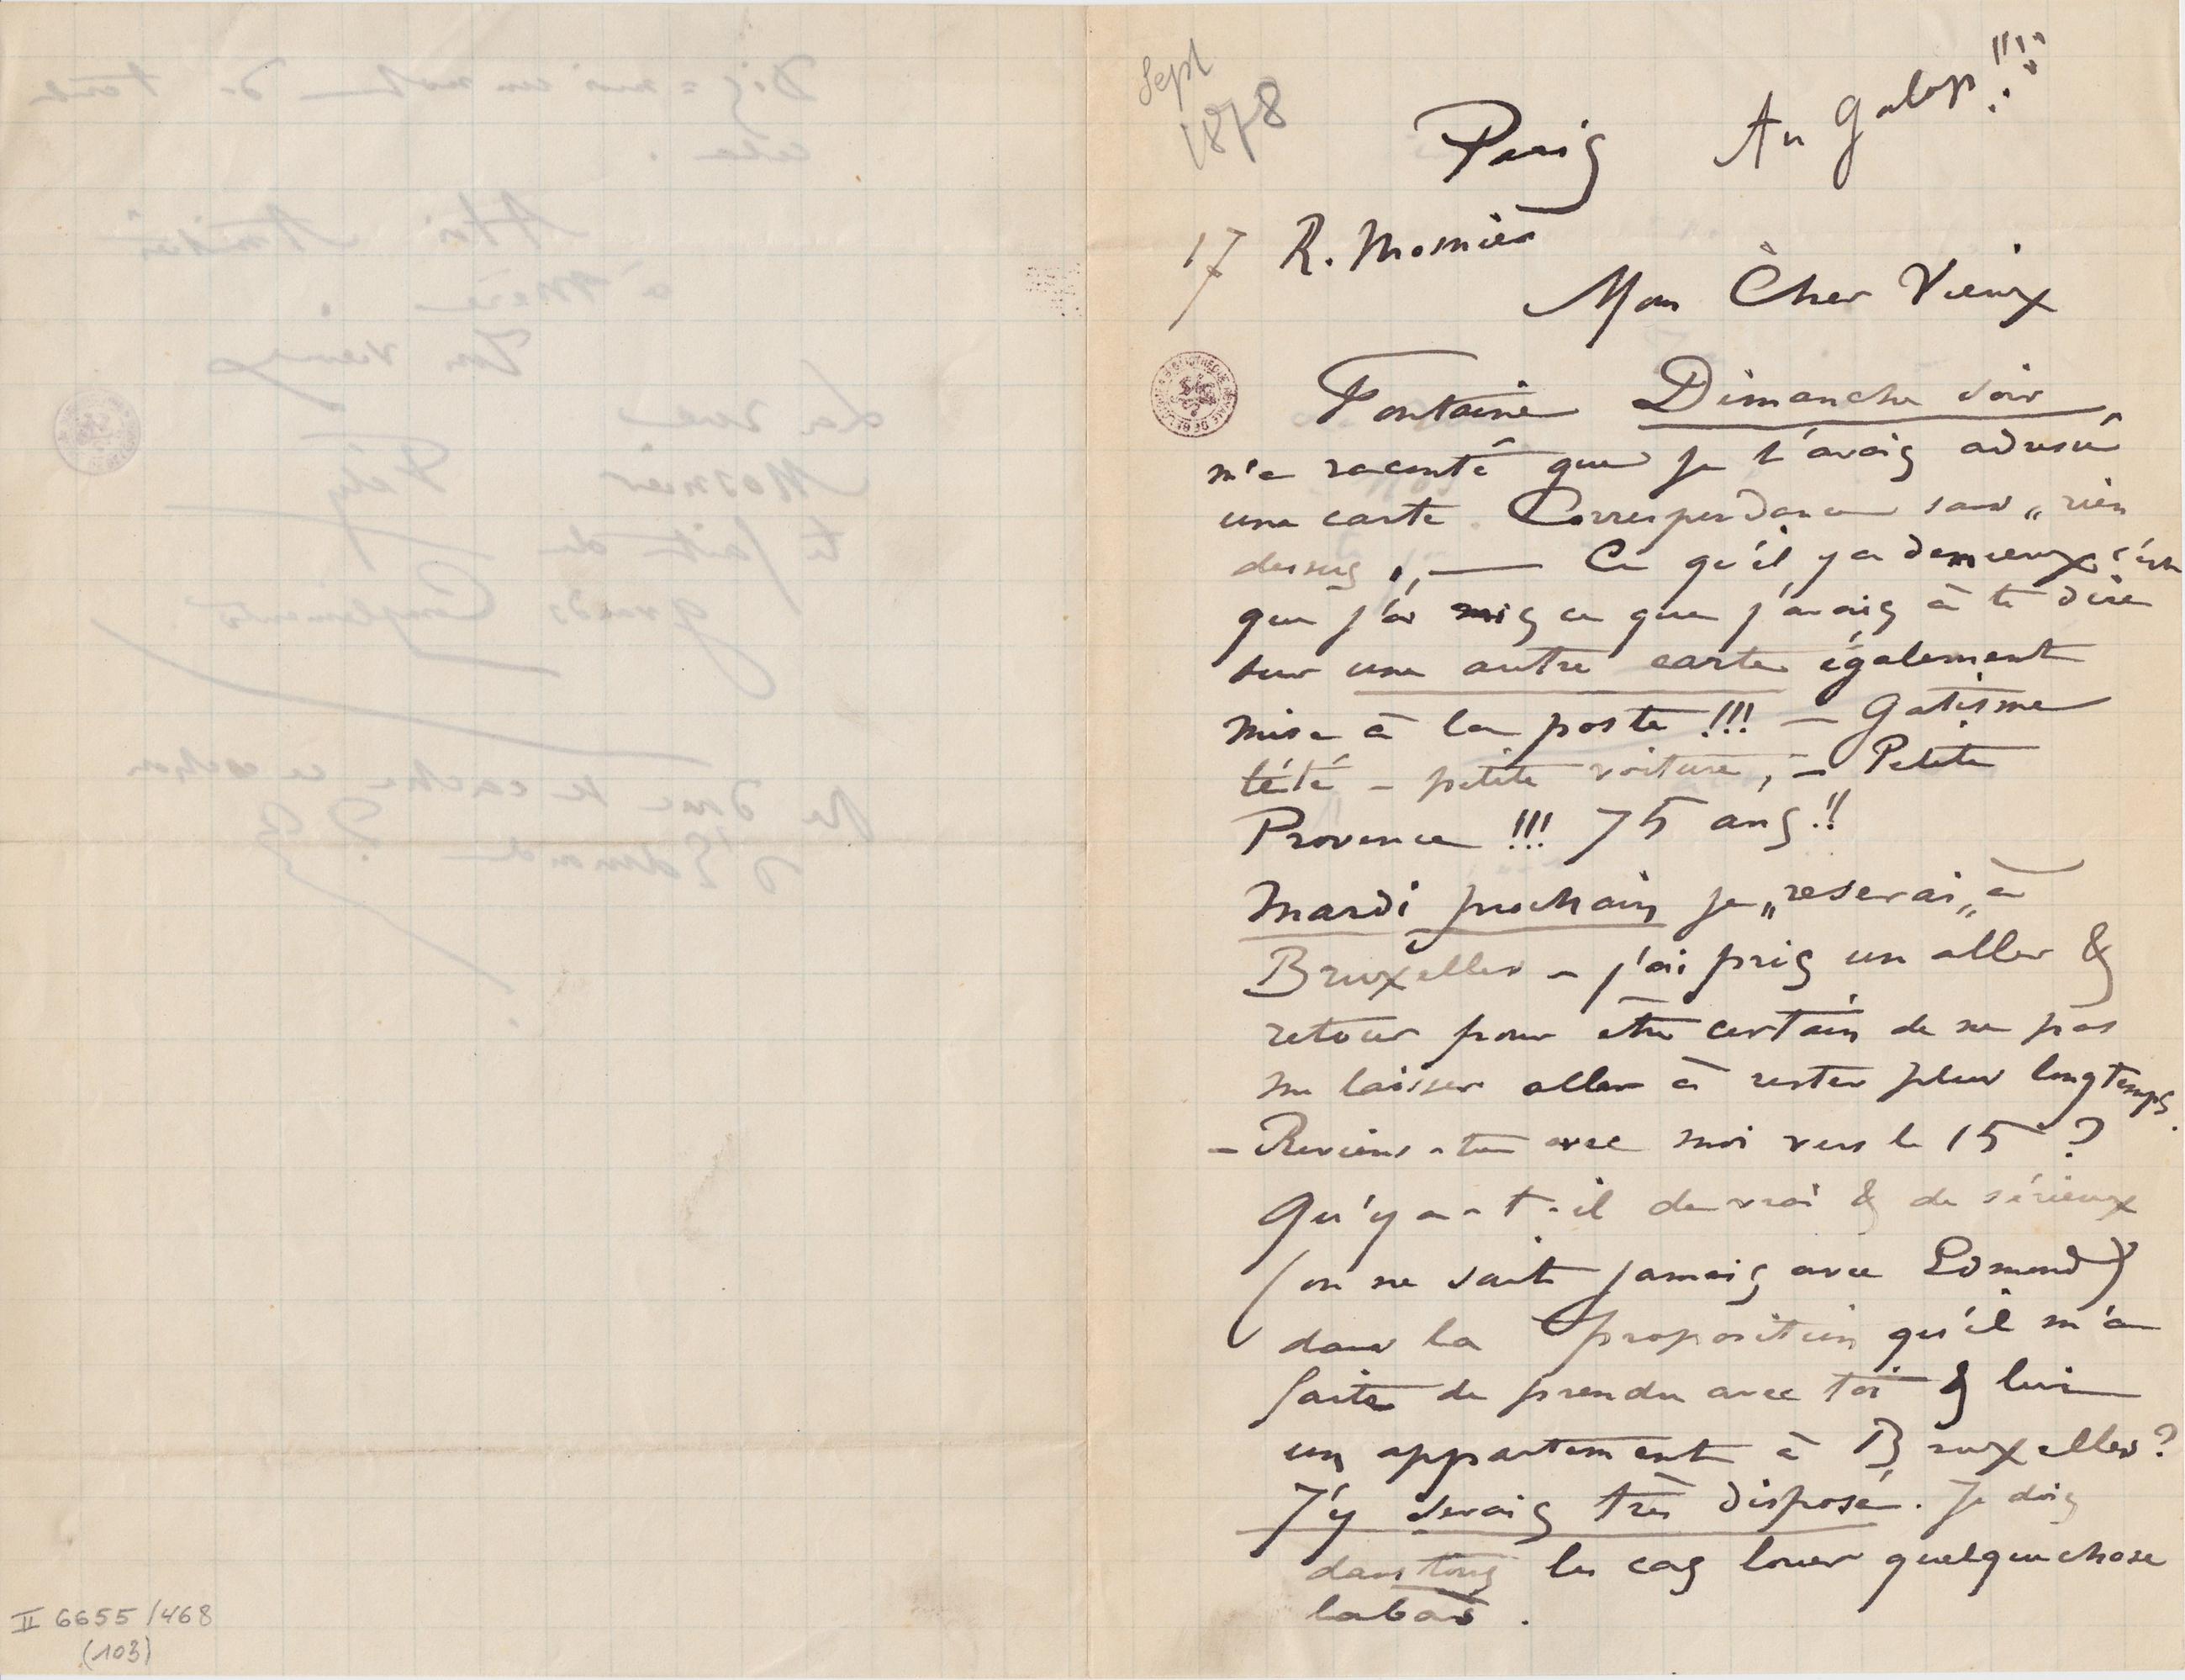 Sept
1878
Paris Au galop!!!!
17 R. Mosnier
Mon Cher Vieux
Fontaine Dimanche soir
m'a raconté que je t'avais adressé
une carte Correspondance sans „ rien
dessus „ — Ce qu'il y a de mieux c'est
que j'ai mis ce que j'avais à te dire
sur une autre carte également
mise à la poste !!! – Gatisme
tété – petite voiture, – Petite
Provence !!! 75 ans !!
Mardi prochain je „reserai„ à
Bruxelles – j'ai pris un aller &
retour pour être certain de ne pas
me laisser aller à rester plus longtemps.
– Reviens-tu avec moi vers le 15 ?
Qu'y a-t-il de vrai & de sérieux
(on ne sait jamais avec Edmond)
dans la proposition qu'il m'a
faite de prendre avec toi & lui
un appartement à Bruxelles ?
J'y serais très disposé. Je dois
dans tous les cas louer quelque chose
labas .
II 6655/468
(103)